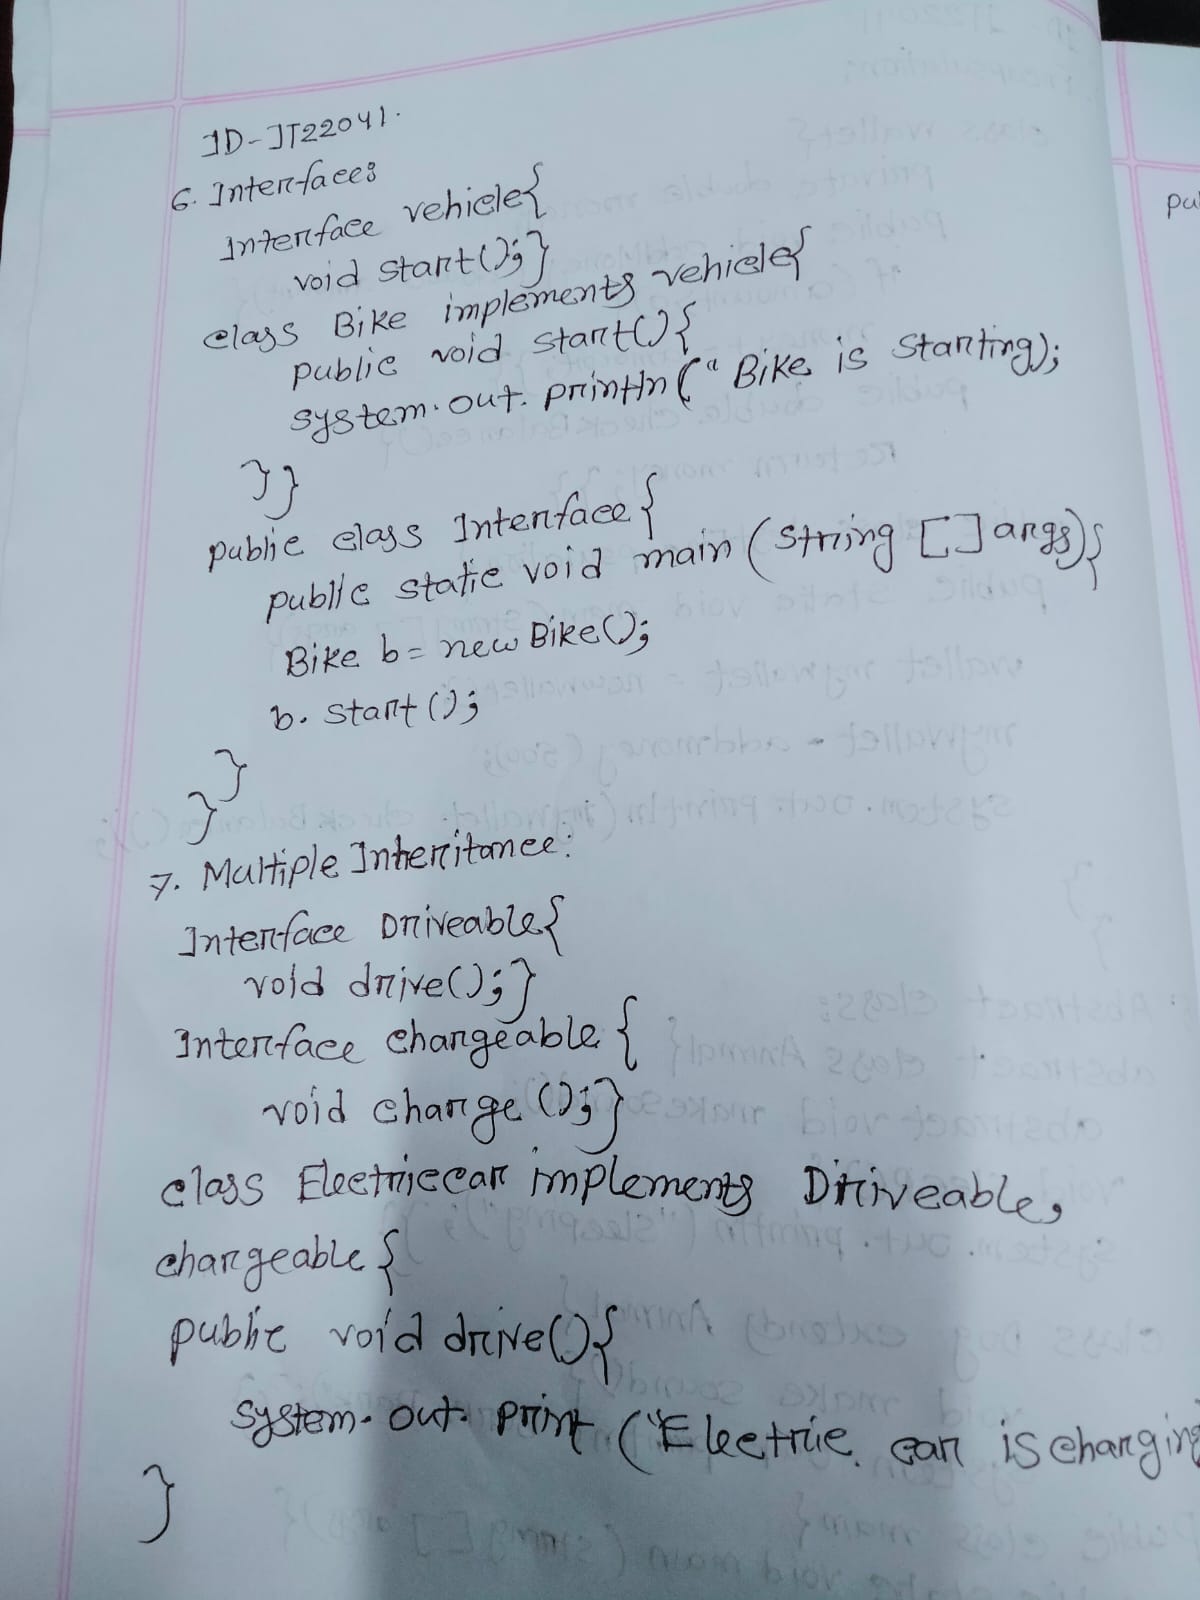 ID-IT22041.
6. Interface:
Interface vehicle{
void start();}
class Bike implements vehicle{
public void start(){
system.out.println("Bike is starting);
}}
public class Interface{
public static void main (String [] args){
Bike b= new Bike();
b. start();
}
}
7. Multiple Inheritance:
Interface Driveable{
void drive();}
Interface chargeable {
void charge ();}
class Electriccar implements Driveable,
chargeable {
public void drive(){
system.out.print ("Electric car is charging
}